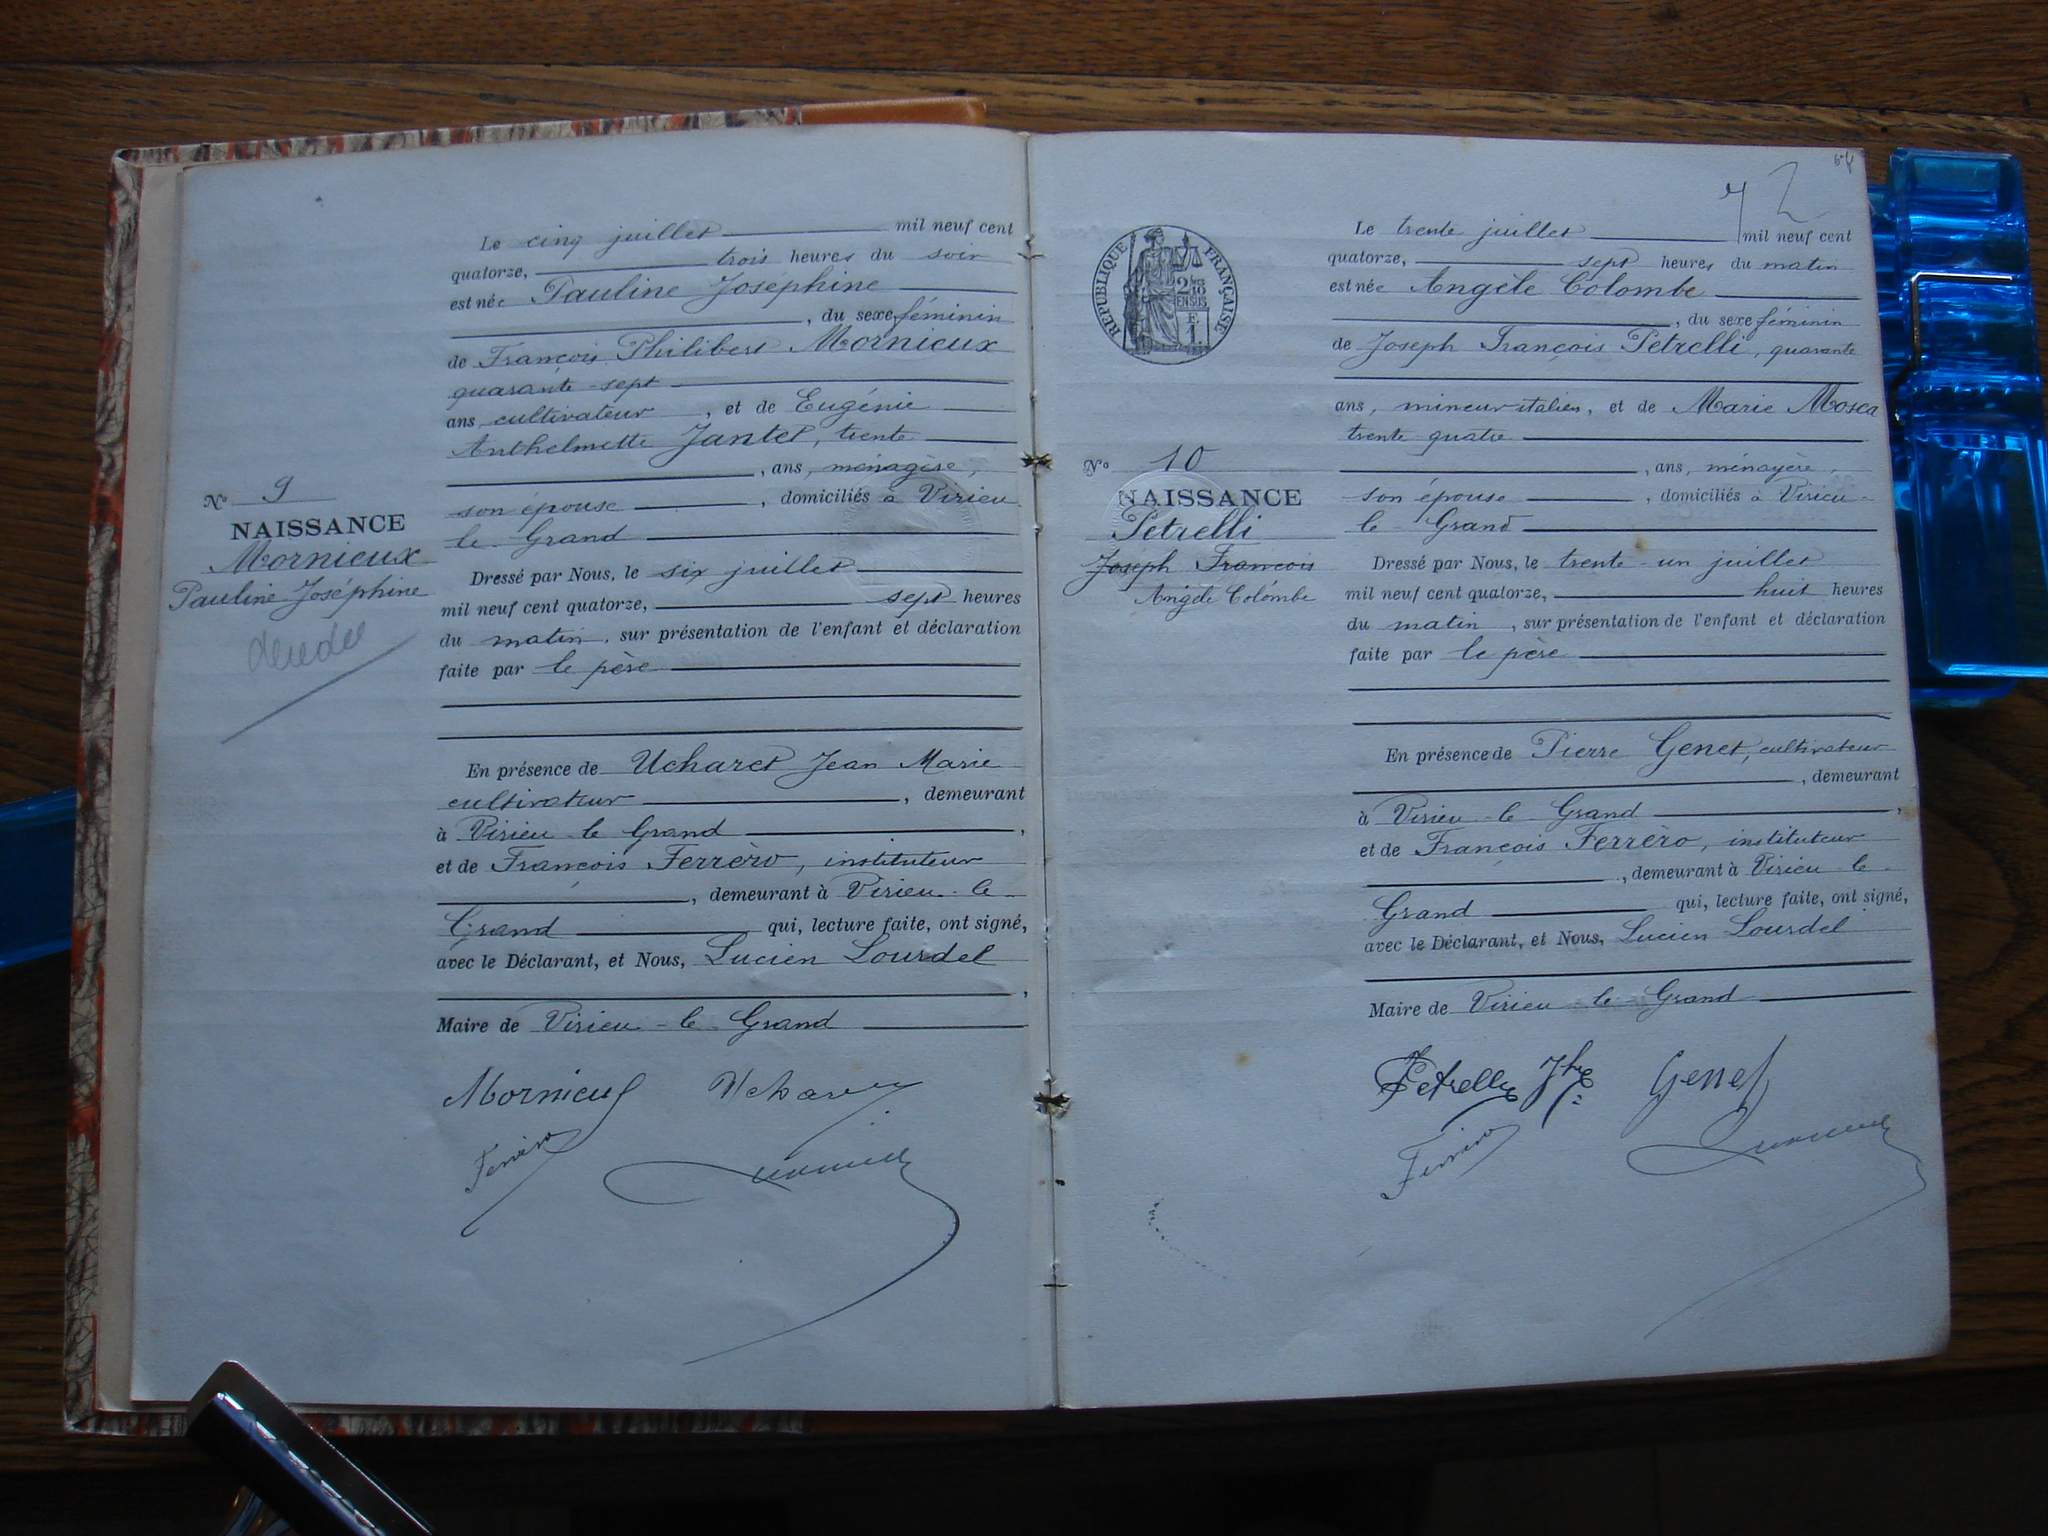 Le cinq juillet mil neuf cent
quatorze, trois heures du soir
est née Pauline Joséphine
, du sexe féminin
de François Philibert Mornieux
quarante-sept
ans, cultivateur, et de Eugénie
Anthelmette Jantet, trente
, ans, ménagère,
son épouse, domiciliés à Virieu
le Grand
Dressé par Nous, le six juillet
mil neuf cent quatorze, sept heures
du matin, sur présentation de l'enfant et déclaration
faite par le père
En présence de Ucharet Jean Marie
cultivateur, demeurant
à Virieu-le Grand,
et de François Ferrèro, instituteur
, demeurant à Virieu-le-
Grand qui, lecture faite, ont signé,
avec le Déclarant, et Nous, Lucien Lourdel
,
Maire de Virieu-le-Grand
Mornieux
Ferrero
No 9
NAISSANCE
Mornieux
Pauline Joséphine
72
REPUBLIQUE FRANÇAISE
2/10
EN SUS
F.
1.
Le trente juillet mil neuf cent
quatorze, sept heures du matin
est née Angèle Colombe
, du sexe féminin
de Joseph François Petrelli, quarante
ans, mineur italien, et de Marie Mosca
trente quatre
, ans, ménagère,
son épouse, domiciliés à Virieu-
le-Grand
Dressé par Nous, le trente-un juillet
mil neuf cent quatorze, huit heures
du matin, sur présentation de l'enfant et déclaration
faite par le père
En présence de Pierre Genet, cultivateur
, demeurant
à Virieu-le-Grand,
et de François Ferrèro, instituteur
, demeurant à Virieu-le-
Grand qui, lecture faite, ont signé,
avec le Déclarant, et Nous, Lucien Lourdel
Maire de Virieu-le-Grand
Petrelli Genet
Ferrero
No 10
NAISSANCE
Petrelli
Joseph François
Angèle Colombe